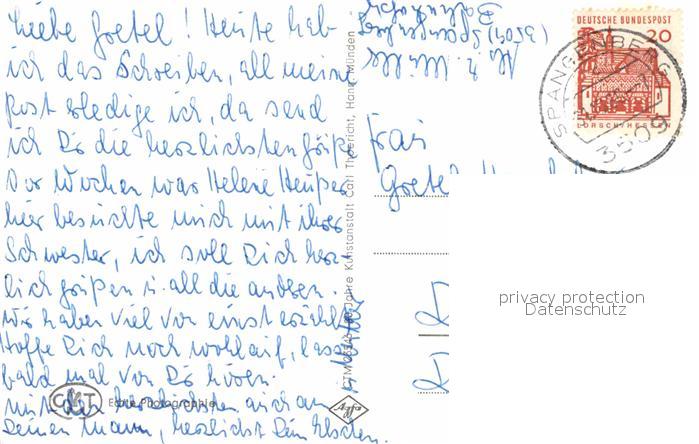 Liebe Gretel! Heute hab
ich das Schreiben, all meine
Post erledige ich, da send
ich Dir die herzlichsten Grüße
Vor Wochen war Helene
hier besuchte mich mit ihrer
Schwester, ich soll Dich herz-
lich grüßen u. all die anderen.
Wir haben viel von einst erzählt
Hoffe Dich noch wohlauf, lass
bald mal von Dir hören.
mit den herzlichsten auch an
Deinen Mann, herzlichst Dein Elschen.
Echte Photographie
Agfa
Kunstanstalt Carl Thoericht, Hann. Münden
Müller
(3509) Spangenberg
Bahnhofstr.
DEUTSCHE BUNDESPOST
20
LORSCH/HESSEN
SPANGENBERG
3509
Frau
Gretel
privacy protection
Datenschutz